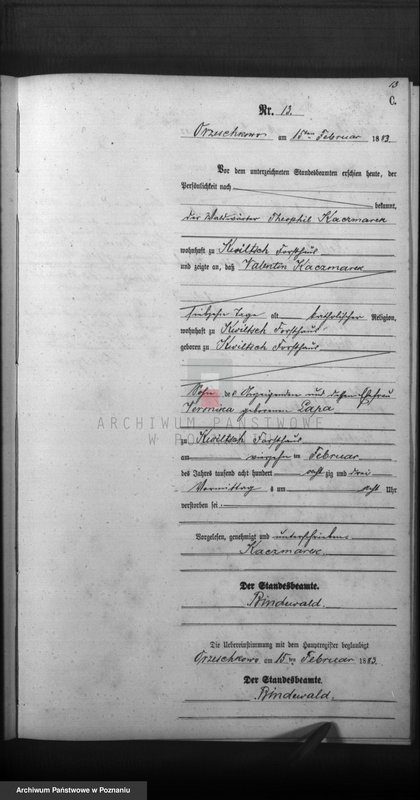 13
C.
Nr. 13.
Orzeschkowo am 15ten Februar 1883.
Vor dem unterzeichneten Standesbeamten erschien heute, der
Persönlichkeit nach
bekannt,
der Waldwärter Theophil Kaczmarek
wohnhaft zu Kwiltsch Forsthaus
und zeigte an, daß Valentin Kaczmarek
fünfzehn Tage alt katholischer Religion,
wohnhaft zu Kwiltsch Forsthaus
geboren zu Kwiltsch Forsthaus
Sohn des Anzeigenden und dessen Ehefrau
Veronika geborenen Lapa
ARCHIWUM PAŃSTWOWE
W
zu Kwiltsch Forsthaus
am vierzehn ten Februar
des Jahres tausend acht hundert acht zig und drei
Vormittag s um acht Uhr
verstorben sei.
Vorgelesen, genehmigt und unterschrieben
Kaczmarek.
Der Standesbeamte.
Bindewald.
Die Uebereinstimmung mit dem Hauptregister beglaubigt
Orzeschkowo am 15ten Februar 1883.
Der Standesbeamte.
Bindewald.
Archiwum Państwowe w Poznaniu